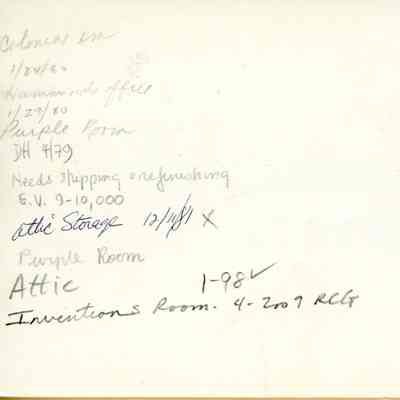 Colonial Rm
1/24/80
Hammonds office
1/29/80
Purple Room
DH 4/79
Needs stripping & refinishing
E.V. 9-10,000
Attic Storage 12/11/81 X
Purple Room
Attic 1-98 ✓
Inventions Room. 4-2009 RCG